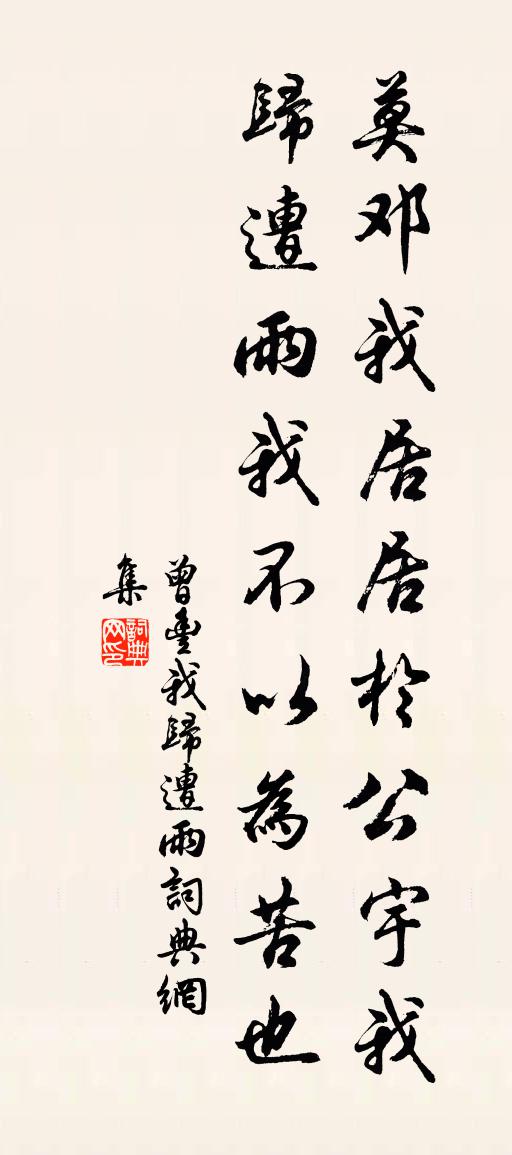 莫邓我居居於公宇我
歸遭雨我不以為苦也
曾豐我歸遭雨詞典網
集
詞典
网印